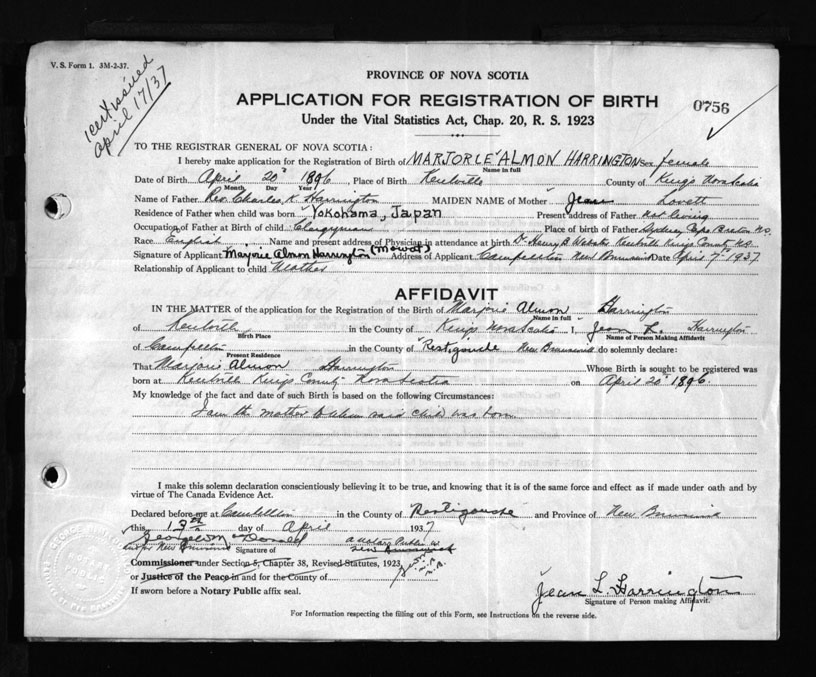 V. S. Form 1. 3M-2-37.
cert issued
April 17/37
PROVINCE OF NOVA SCOTIA
APPLICATION FOR REGISTRATION OF BIRTH
0756
Under the Vital Statistics Act, Chap. 20, R. S. 1923
TO THE REGISTRAR GENERAL OF NOVA SCOTIA:
I hereby make application for the Registration of Birth of MARJORIE ALMON HARRINGTON Sex female
Name in full
Date of Birth April 20th 1896, Place of Birth Kentville County of Kings Nova Scotia
Month Day Year
Name of Father Rev. Charles K. Harrington MAIDEN NAME of Mother Jean Lovett
Residence of Father when child was born Yokohama, Japan Present address of Father not living
Occupation of Father at Birth of child Clergyman Place of birth of Father Sydney Cape Breton N.S.
Race English Name and present address of Physician in attendance at birth Dr Henry B. Webster Kentville Kings County N.S.
Signature of Applicant Marjorie Almon Harrington (Mowat) Address of Applicant Campbellton New Brunswick Date April 7th 1937
Relationship of Applicant to child Mother
AFFIDAVIT
IN THE MATTER of the application for the Registration of the Birth of Marjorie Almon Harrington
Name in full
of Kentville in the County of Kings Nova Scotia I, Jean L. Harrington
Birth Place Name of Person Making Affidavit
of Campbellton in the County of Restigouche New Brunswick do solemnly declare:
Present Residence
That Marjorie Almon Harrington Whose Birth is sought to be registered was
born at Kentville Kings County Nova Scotia on April 20th 1896.
My knowledge of the fact and date of such Birth is based on the following Circumstances:
I am the mother to whom said child was born
I make this solemn declaration conscientiously believing it to be true, and knowing that it is of the same force and effect as if made under oath and by
virtue of The Canada Evidence Act.
Declared before me at Campbellton in the County of Restigouche and Province of New Brunswick
this 12th day of April 1937
George McDonald a Notary Public in
and for New Brunswick Signature of
Commissioner under Section 5, Chapter 38, Revised Statutes, 1923,
or Justice of the Peace in and for the County of
If sworn before a Notary Public affix seal.
Jean L. Harrington
Signature of Person making Affidavit.
For Information respecting the filling out of this Form, see Instructions on the reverse side.